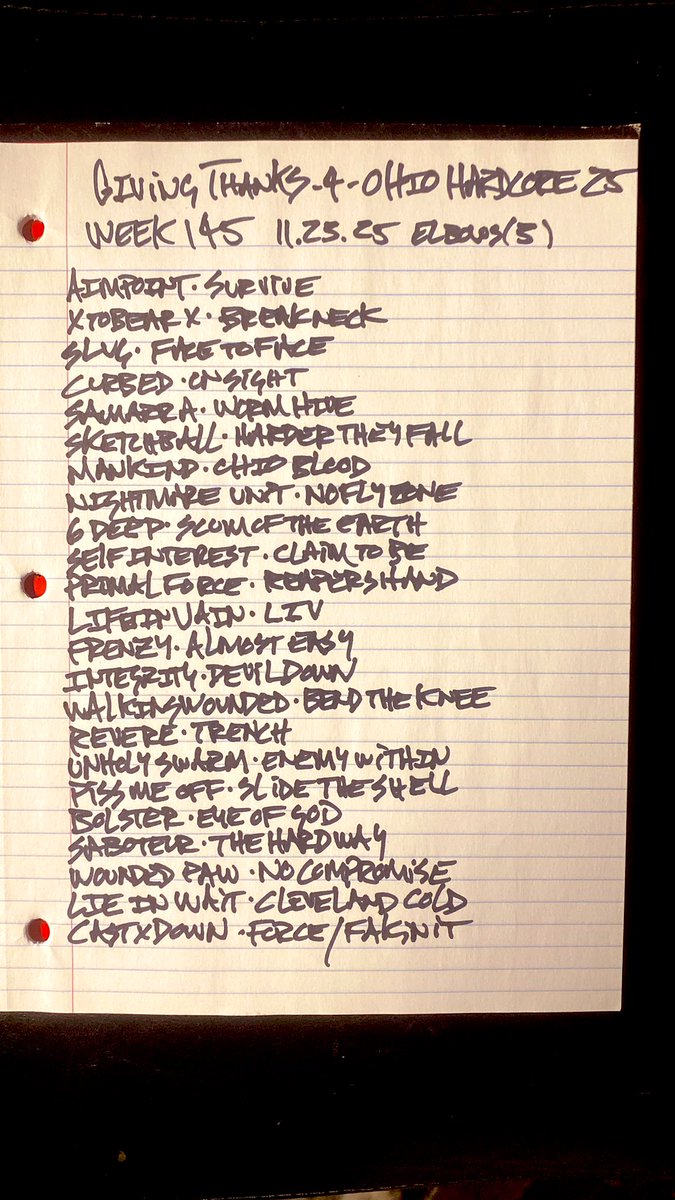 GIVING THANKS-4-OHIO HARDCORE 25
WEEK 145 11.25.25 ELBOWS(5)
AIMPOINT · SURVIVE
XTOBEARX · BREAKNECK
SLUG · FACE TO FACE
CURBED · ON SIGHT
SAMARRA · WORM HIVE
SKETCHBALL · HARDER THEY FALL
MANKIND · OHIO BLOOD
NIGHTMARE UNIT · NO FLY ZONE
6 DEEP · SCUM OF THE EARTH
SELF INTEREST · CLAIM TO BE
PRIMAL FORCE · REAPERS HAND
LIFE IN VAIN · LIV
FRENZY · ALMOST EASY
INTEGRITY · DEVIL DOWN
WALKING WOUNDED · BEND THE KNEE
REVERE · TRENCH
UNHOLY SWARM · ENEMY WITHIN
PISS ME OFF · SLIDE THE SHELL
BOLSTER · EYE OF GOD
SABOTEUR · THE HARD WAY
WOUNDED PAW · NO COMPROMISE
LIE IN WAIT · CLEVELAND COLD
CASTXDOWN · FORCE/FAKGN IT